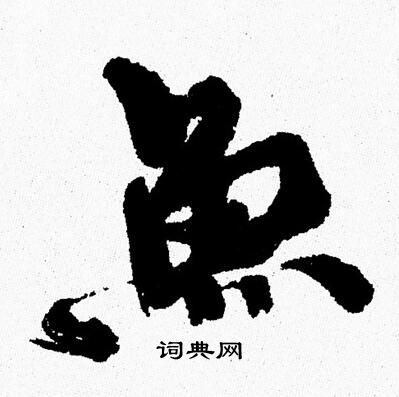 魚
词典网